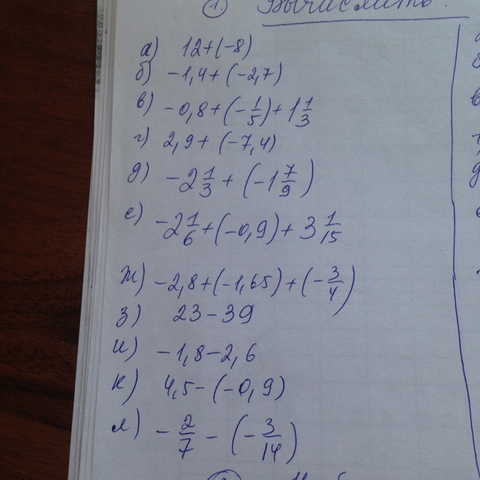 ① Вычислить.
а) 12+(-8)
б) -1,4+(-2,7)
в) -0,8+(-1/5)+1 1/3
г) 2,9+(-7,4)
д) -2 1/3+(-1 7/9)
е) -2 1/6+(-0,9)+3 1/15
ж) -2,8+(-1,65)+(-3/4)
з) 23-39
и) -1,8-2,6
к) 4,5-(-0,9)
л) -2/7-(-3/14)